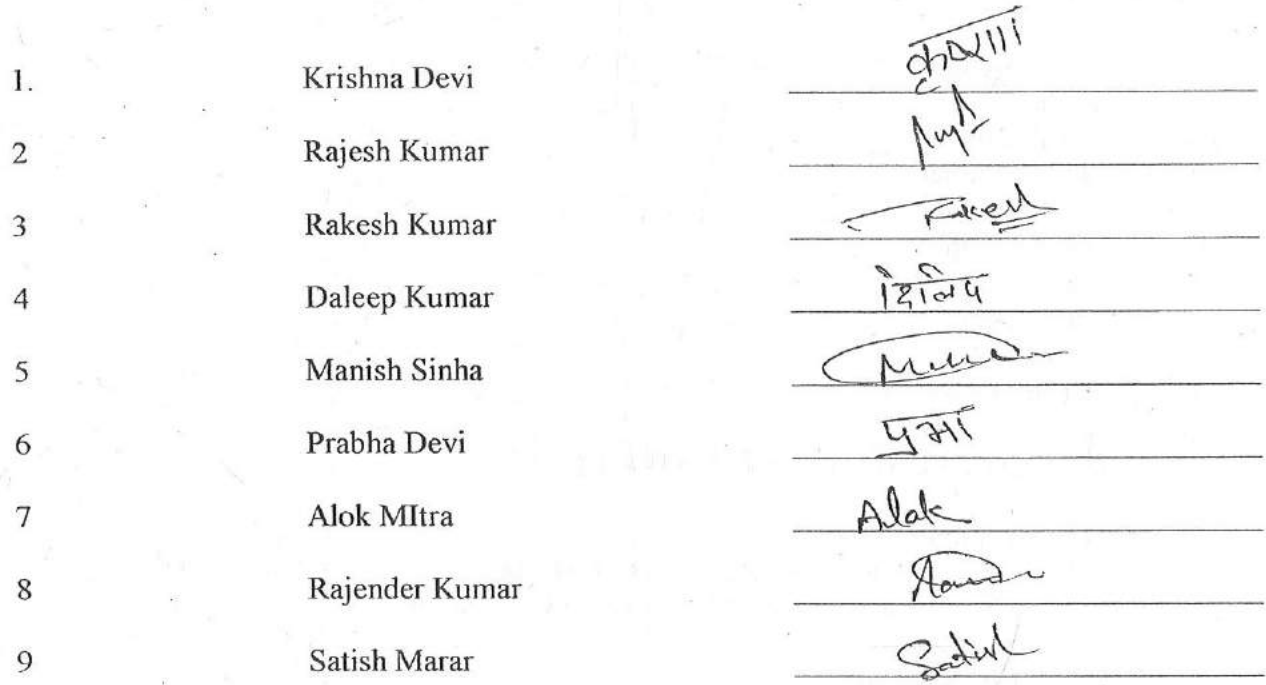 1. Krishna Devi कृष्णा
2 Rajesh Kumar
3 Rakesh Kumar Rakesh
4 Daleep Kumar
5 Manish Sinha
6 Prabha Devi प्रभा
7 Alok MItra Alak
8 Rajender Kumar
9 Satish Marar Satish